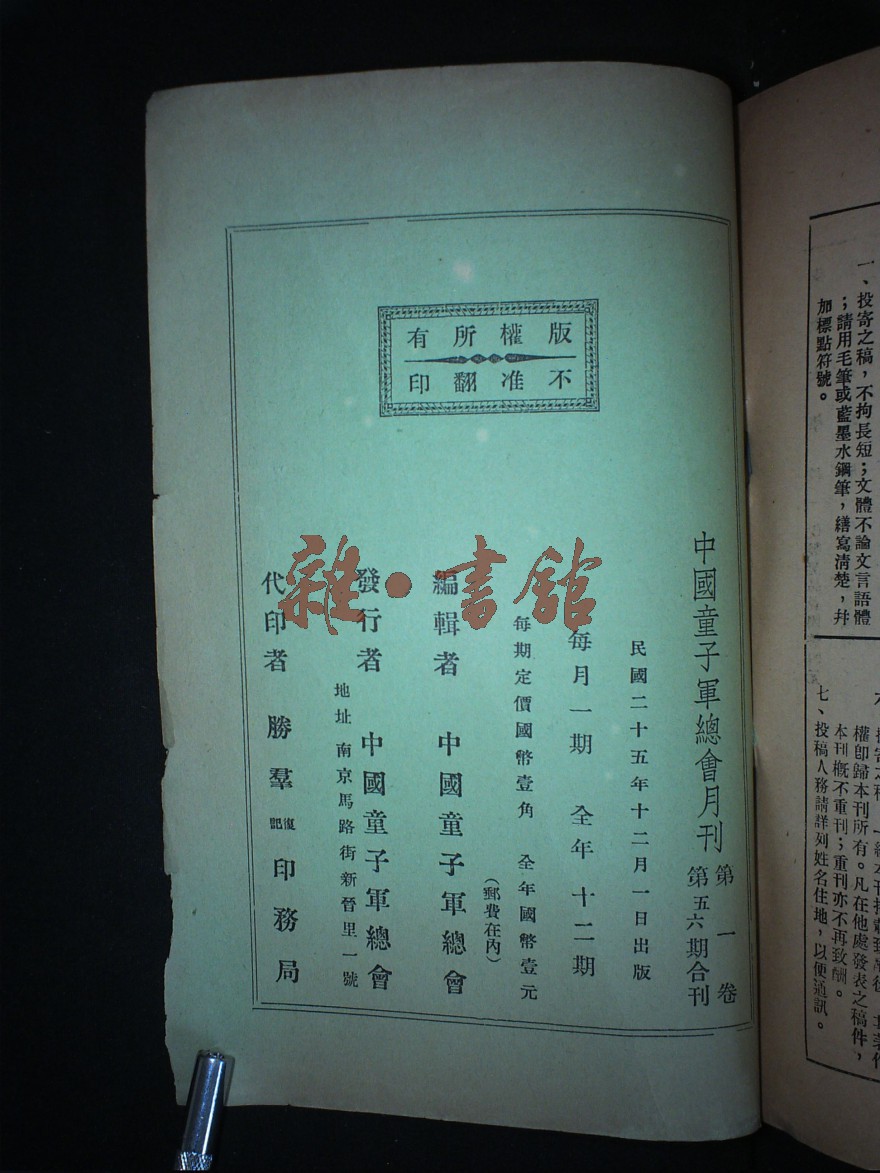 版權所有
不准翻印
中國童子軍總會月刊 第一卷
第五六期合刊
民國二十五年十二月一日出版
每月一期 全年十二期
每期定價國幣壹角 全年國幣壹元
(郵費在內)
編輯者 中國童子軍總會
發行者 中國童子軍總會
地址 南京馬路街新晉里一號
代印者 勝羣復記印務局
雜·書館
一、投寄之稿，不拘長短；文體不論文言語體
；請用毛筆或藍墨水鋼筆，繕寫清楚，幷
加標點符號。
權卽歸本刊所有。凡在他處發表之稿件，
本刊概不重刊；重刊亦不再致酬。
七、投稿人務請詳列姓名住地，以便通訊。